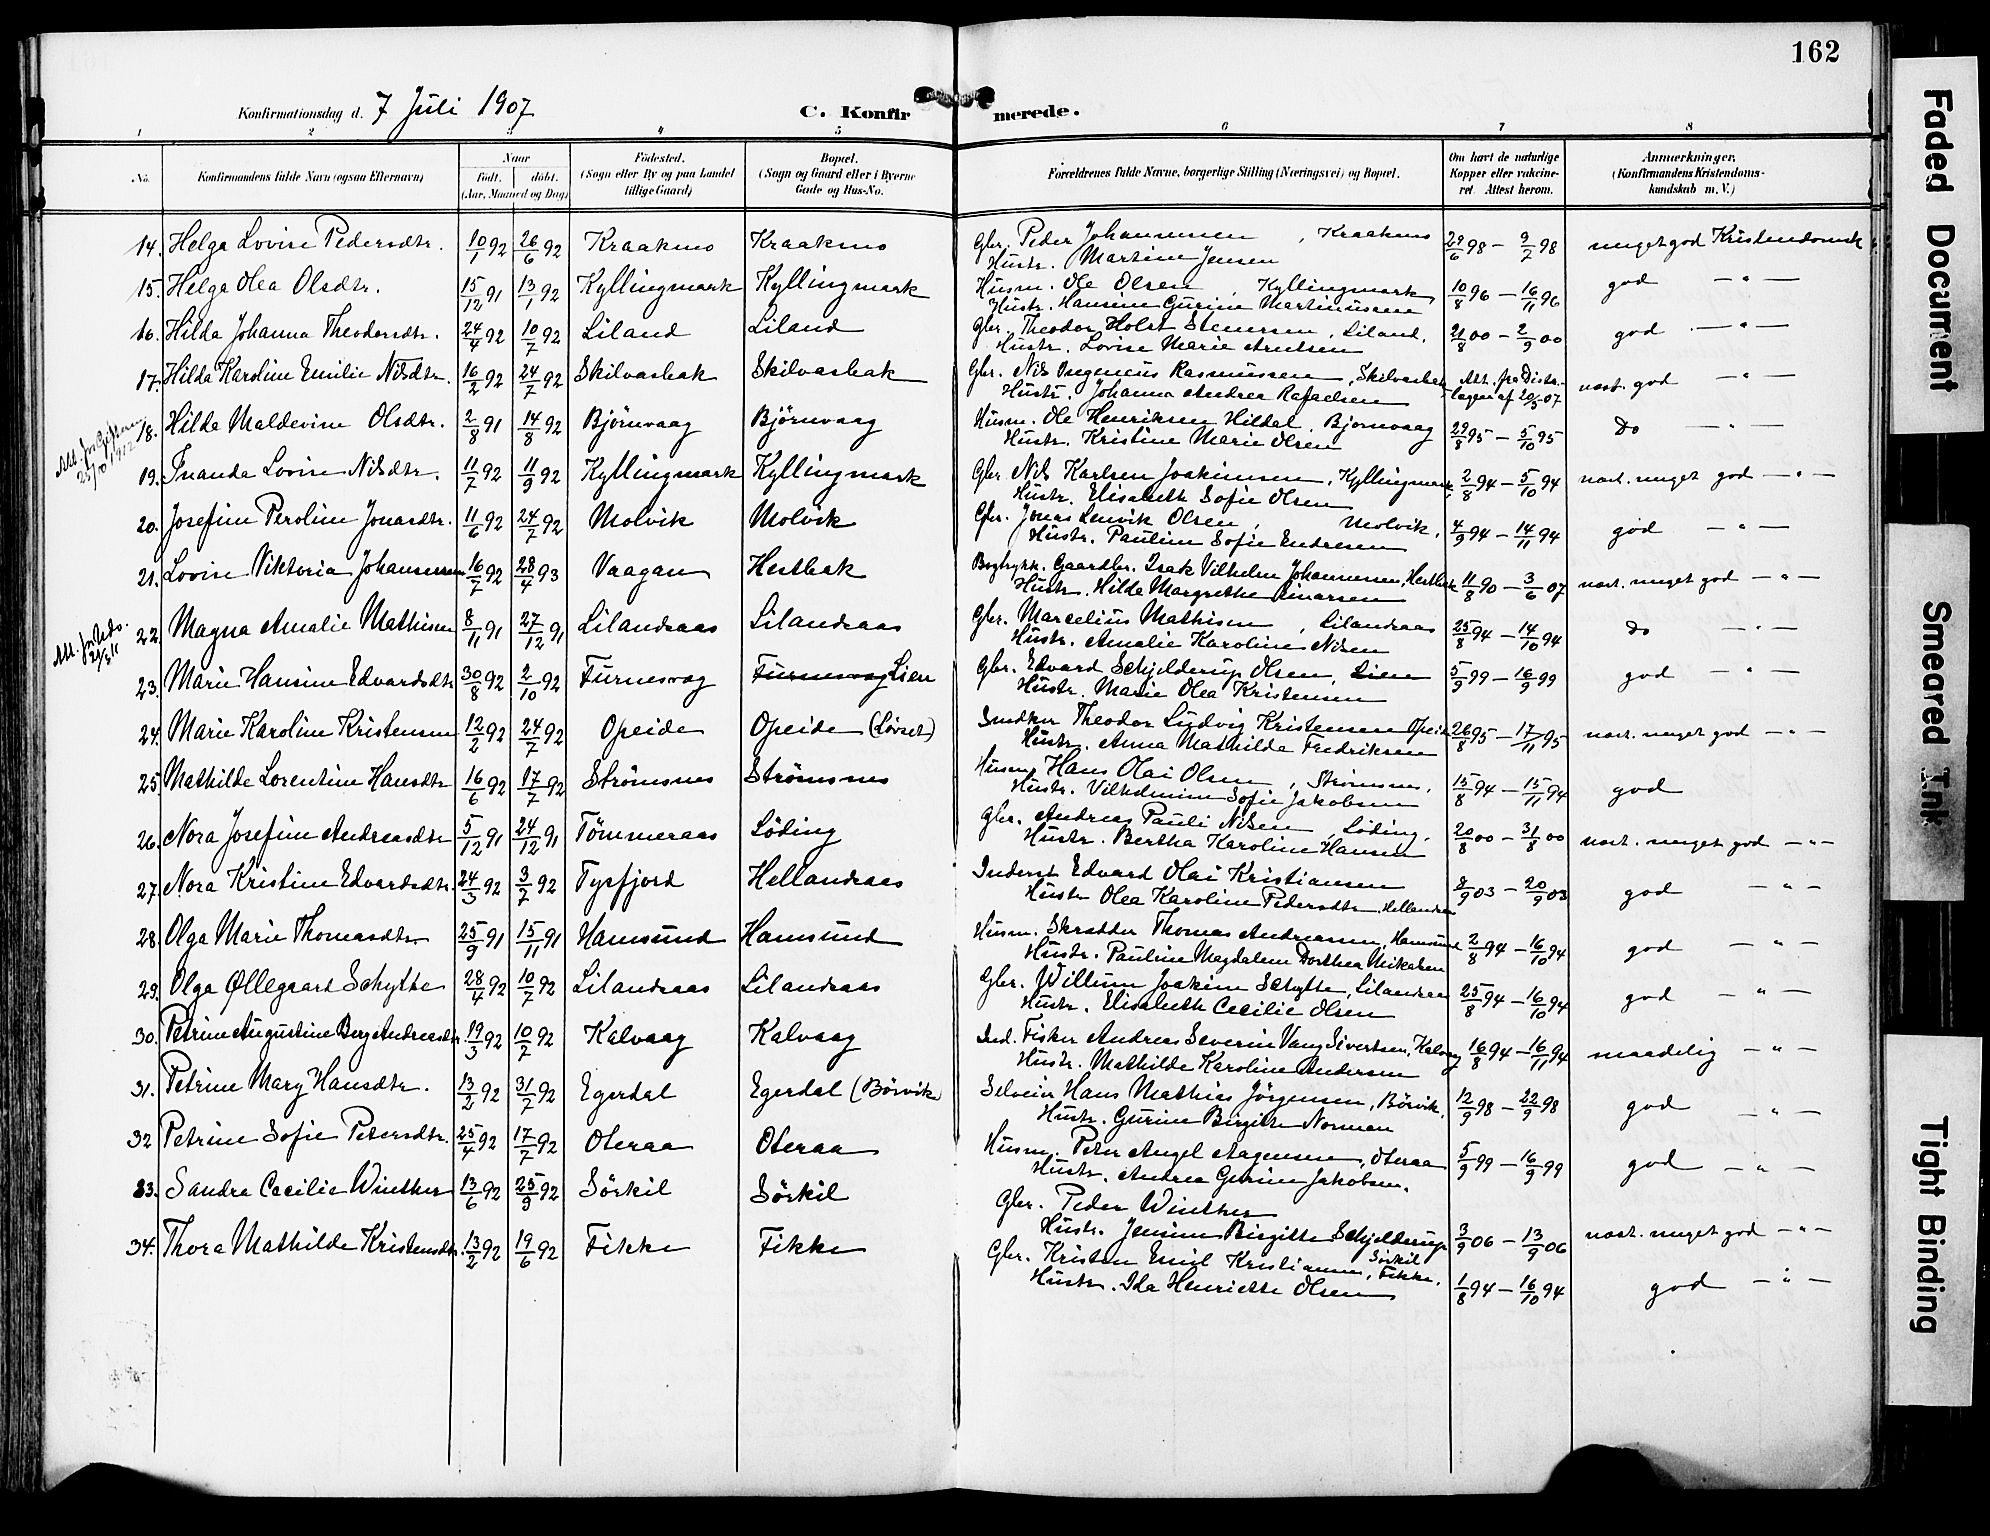 162
Konfirmationsdag d. 7 Juli 1907
C. Konfirmerede.
1 2 3 4 5 6 7 8
No. Konfirmandens fulde Navn (ogsaa Efternavn) Naar født. døbt. (Aar, Maaned og Dag) Fødested. (Sogn eller By og paa Landet tillige Gaard) Bopæl. (Sogn og Gaard eller i Byerne Gade og Hus-No. Forældrenes fulde Navne, borgerlige Stilling (Næringsvei) og Bopæl. Om havt de naturlige Kopper eller vakcineret Attest herom. Anmerkninger. (Konfirmandens Kristendomskundskab m. V.)
14. Helga Lovise Pedersdtr. 10/1 92 26/6 92 Kraakmo Kraakmo Gbr. Peder Johannessen, Kraakmo 29/6 98 — 9/7 98 meget god Kristendomsk
Hustr. Martine Jensen
15. Helga Olea Olsdtr. 15/12 91 13/1 92 Kyllingmark Kyllingmark Husm. Ole Olsen, Kyllingmark 10/8 96 — 16/11 96 god — " —
Hustr. Hansine Gurine Martinussen
16. Hilda Johanna Theodorsdtr. 24/4 92 10/7 92 Liland Liland Gbr. Theodor Holst Stenersen, Liland. 21/8 00 — 2/9 00 god — " —
Hustr. Lovise Marie Arntsen
17. Hilda Karoline Emilie Nilsdtr. 16/2 92 24/7 92 Skilvasbak Skilvasbak Gbr. Nils Rasmussen, Skilvasbak Att. fra Distr. nast. god — " —
Hustr. Johanna Andrea Rafaelsen lægen af 20/5 07
Att. for
25/10 1912
18. Hilda Maldevine Olsdtr. 2/8 91 14/8 92 Bjørnvaag Bjørnvaag Husm. Ole Henriksen Hildal, Bjornvaag 29/8 95 — 5/10 95 Do — " —
Hustr. Kristine Marie Olsen
19. Inanda Lovise Nilsdtr. 11/7 92 11/9 92 Kyllingmark Kyllingmark Gbr. Nils Karlsen Joakimsen, Kyllingmark 2/8 94 — 5/10 94 nast. meget god — " —
Hustr. Elisabeth Sofie Olsen
20. Josefine Peroline Jonasdtr. 11/6 92 24/7 92 Molvik Molvik Gbr. Jonas Lenvik Olsen, Molvik, 4/9 94 — 14/11 94 god — " —
Hustr. Pauline Sofie Endresen
21. Lovise Viktoria Johannessen 16/7 92 28/4 93 Vaagan Hestbak Bogtrykk. Gaardbr. Isak Vilhelm Johannessen, Hestbak 11/8 90 — 3/6 07 nast. meget god — " —
Hustr. Hilda Margrethe Einarsen
Att. for Uds.
22. Magna Amalie Mathisen 8/11 91 27/12 91 Lilandsaas Lilandsaas Gbr. Marcelius Mathisen, Lilandsaas 25/8 94 — 14/10 94 Do — " —
Hustr. Amalie Karoline Nilsen
23. Marie Hansine Edvardsdtr 30/8 92 2/10 92 Furnesvag Furnesvag Lien Gbr. Edvard Schjelderup Olsen, Lien 5/9 99 — 16/9 99 god — " —
Hustr. Marie Olea Kristensen
24. Marie Karoline Kristensen 12/2 92 24/7 92 Opeide Opeide (Løvset) Snedker Theodor Ludvig Kristensen Opeide 26/8 95 — 17/11 95 nast. meget god — " —
Hustr. Anna Mathilde Fredriksen
25 Mathilde Lorentine Hansdtr 16/6 92 17/7 92 Strømsnes Strømsnes Husm. Hans Olai Olsen, Strømsnes. 15/8 94 — 15/11 94 god
Hustr. Vilhelmine Sofie Jakobsen
26. Nora Josefine Andreasdtr 5/12 91 24/12 91 Tømmeraas Løding Gbr. Andreas Pauli Nilsen, Løding. 20/8 00 — 31/8 00 nast. meget god — " —
Hustr. Bertha Karoline Hansen
27. Nora Kristine Edvardsdtr. 24/3 92 3/7 92 Tysfjord Hellandsaas Inderst Edvard Olai Kristiansen 8/9 03 — 20/9 03 god — " —
Hustr Olea Karoline Pedersdtr. Hellandsaas
28. Olga Marie Thomasdtr. 25/9 91 15/11 91 Hamsund Hamsund Husm. Skrædder Thomas Andreassen, Hamsund 2/8 94 — 16/10 94 god — " —
Hustr. Pauline Magdalene Dorthea Mikalsen
29. Olga Øllegaard Schytte 28/4 92 10/7 92 Lilandsaas Lilandsaas Gbr. Willum Joakim Schytte, Lilandsaas 25/8 94 — 16/10 94 god — " —
Hustr. Elisabeth Cecilie Olsen
30. Petrine Augustine Berg Andreasdtr. 19/3 92 10/7 92 Kalvaag Kalvaag Ind. Fisker Andreas Severin Vang Sivertsen, Kalvaag 16/8 94 — 16/11 94 maadelig — " —
Hustr. Mathilde Karoline Andersen
31. Petrine Mary Hansdtr. 13/2 92 31/7 92 Egerdal Egerdal (Børvik) Selveier Hans Mathias Jørgensen, Børvik, 12/9 98 — 22/9 98 god — " —
Hustr. Gurine Birgitte Norman
32 Petrine Sofie Petersdtr. 25/4 92 17/7 92 Oteraa Oteraa Husm. Peter Angel Aagensen, Oteraa 5/9 99 — 16/9 99 god — " —
Hustr. Andrea Gurine Jakobsen.
33. Sandra Cecilie Winther 13/6 92 25/9 92 Sörkil Sörkil Gbr. Peder Winther
Hustr. Jensine Birgitte Schjelderup Sörkil 3/9 06 — 13/9 06 nast. meget god — " —
34. Thora Mathilde Kristensdtr. 13/2 92 19/6 92 Fikke Fikke Gbr. Kristen Emil Kristiansen, Fikke.
Hustr. Ida Henriette Olsen 1/8 94 — 16/10 94 god — " —
Faded Document
Smeared Ink
Tight Binding